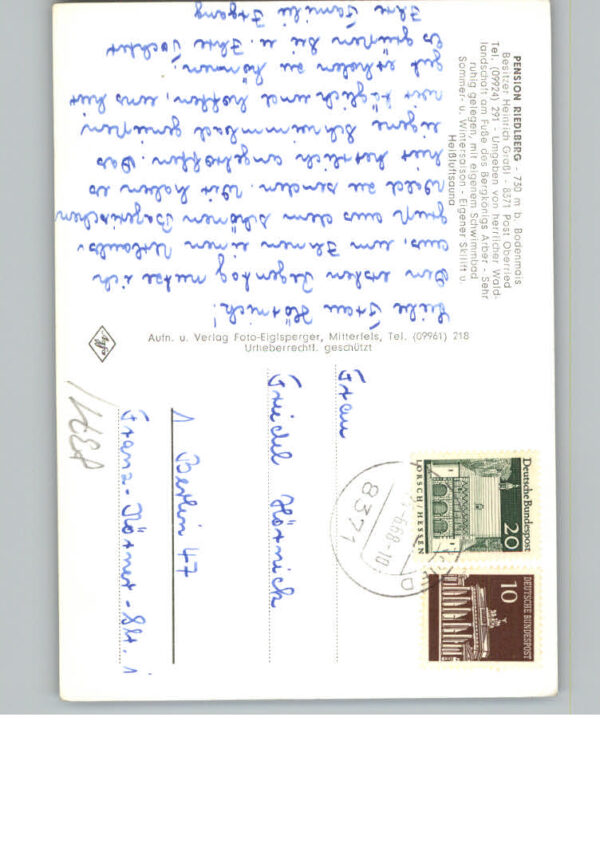 PENSION RIEDLBERG - 730 m b. Bodenmais
Besitzer Heinrich Graßl - 8371 Post Oberried
Tel. (09924) 291 - Umgeben von herrlicher Wald-
landschaft am Fuße des Bergkönigs Arber - Sehr
ruhig gelegen, mit eigenem Schwimmbad
Sommer- u. Wintersaison - Eigener Skilift u
Heißluftsauna
Liebe Frau Hörnich!
Den ersten Regentag nutze ich
aus, um Ihnen einen Urlaubs-
gruß aus dem schönen Bayerischen
Wald zu senden. Wir haben es
hier herrlich angetroffen. Das
eigene Schwimmbad genießen
wir täglich und hoffen, uns hier
gut erholen zu können.
Es grüßen Sie u. Ihre Tochter
Ihre Familie Irgang
Agfa
Aufn. u. Verlag Foto-Eiglsperger, Mitterfels, Tel. (09961) 218
Urheberrechtl. geschützt
Frau
Friedel Hörnich
1 Berlin 47
Franz-Körner-Str. 1
Deutsche Bundespost
20
LORSCH/HESSEN
DEUTSCHE BUNDESPOST
10
8371
6.68-10